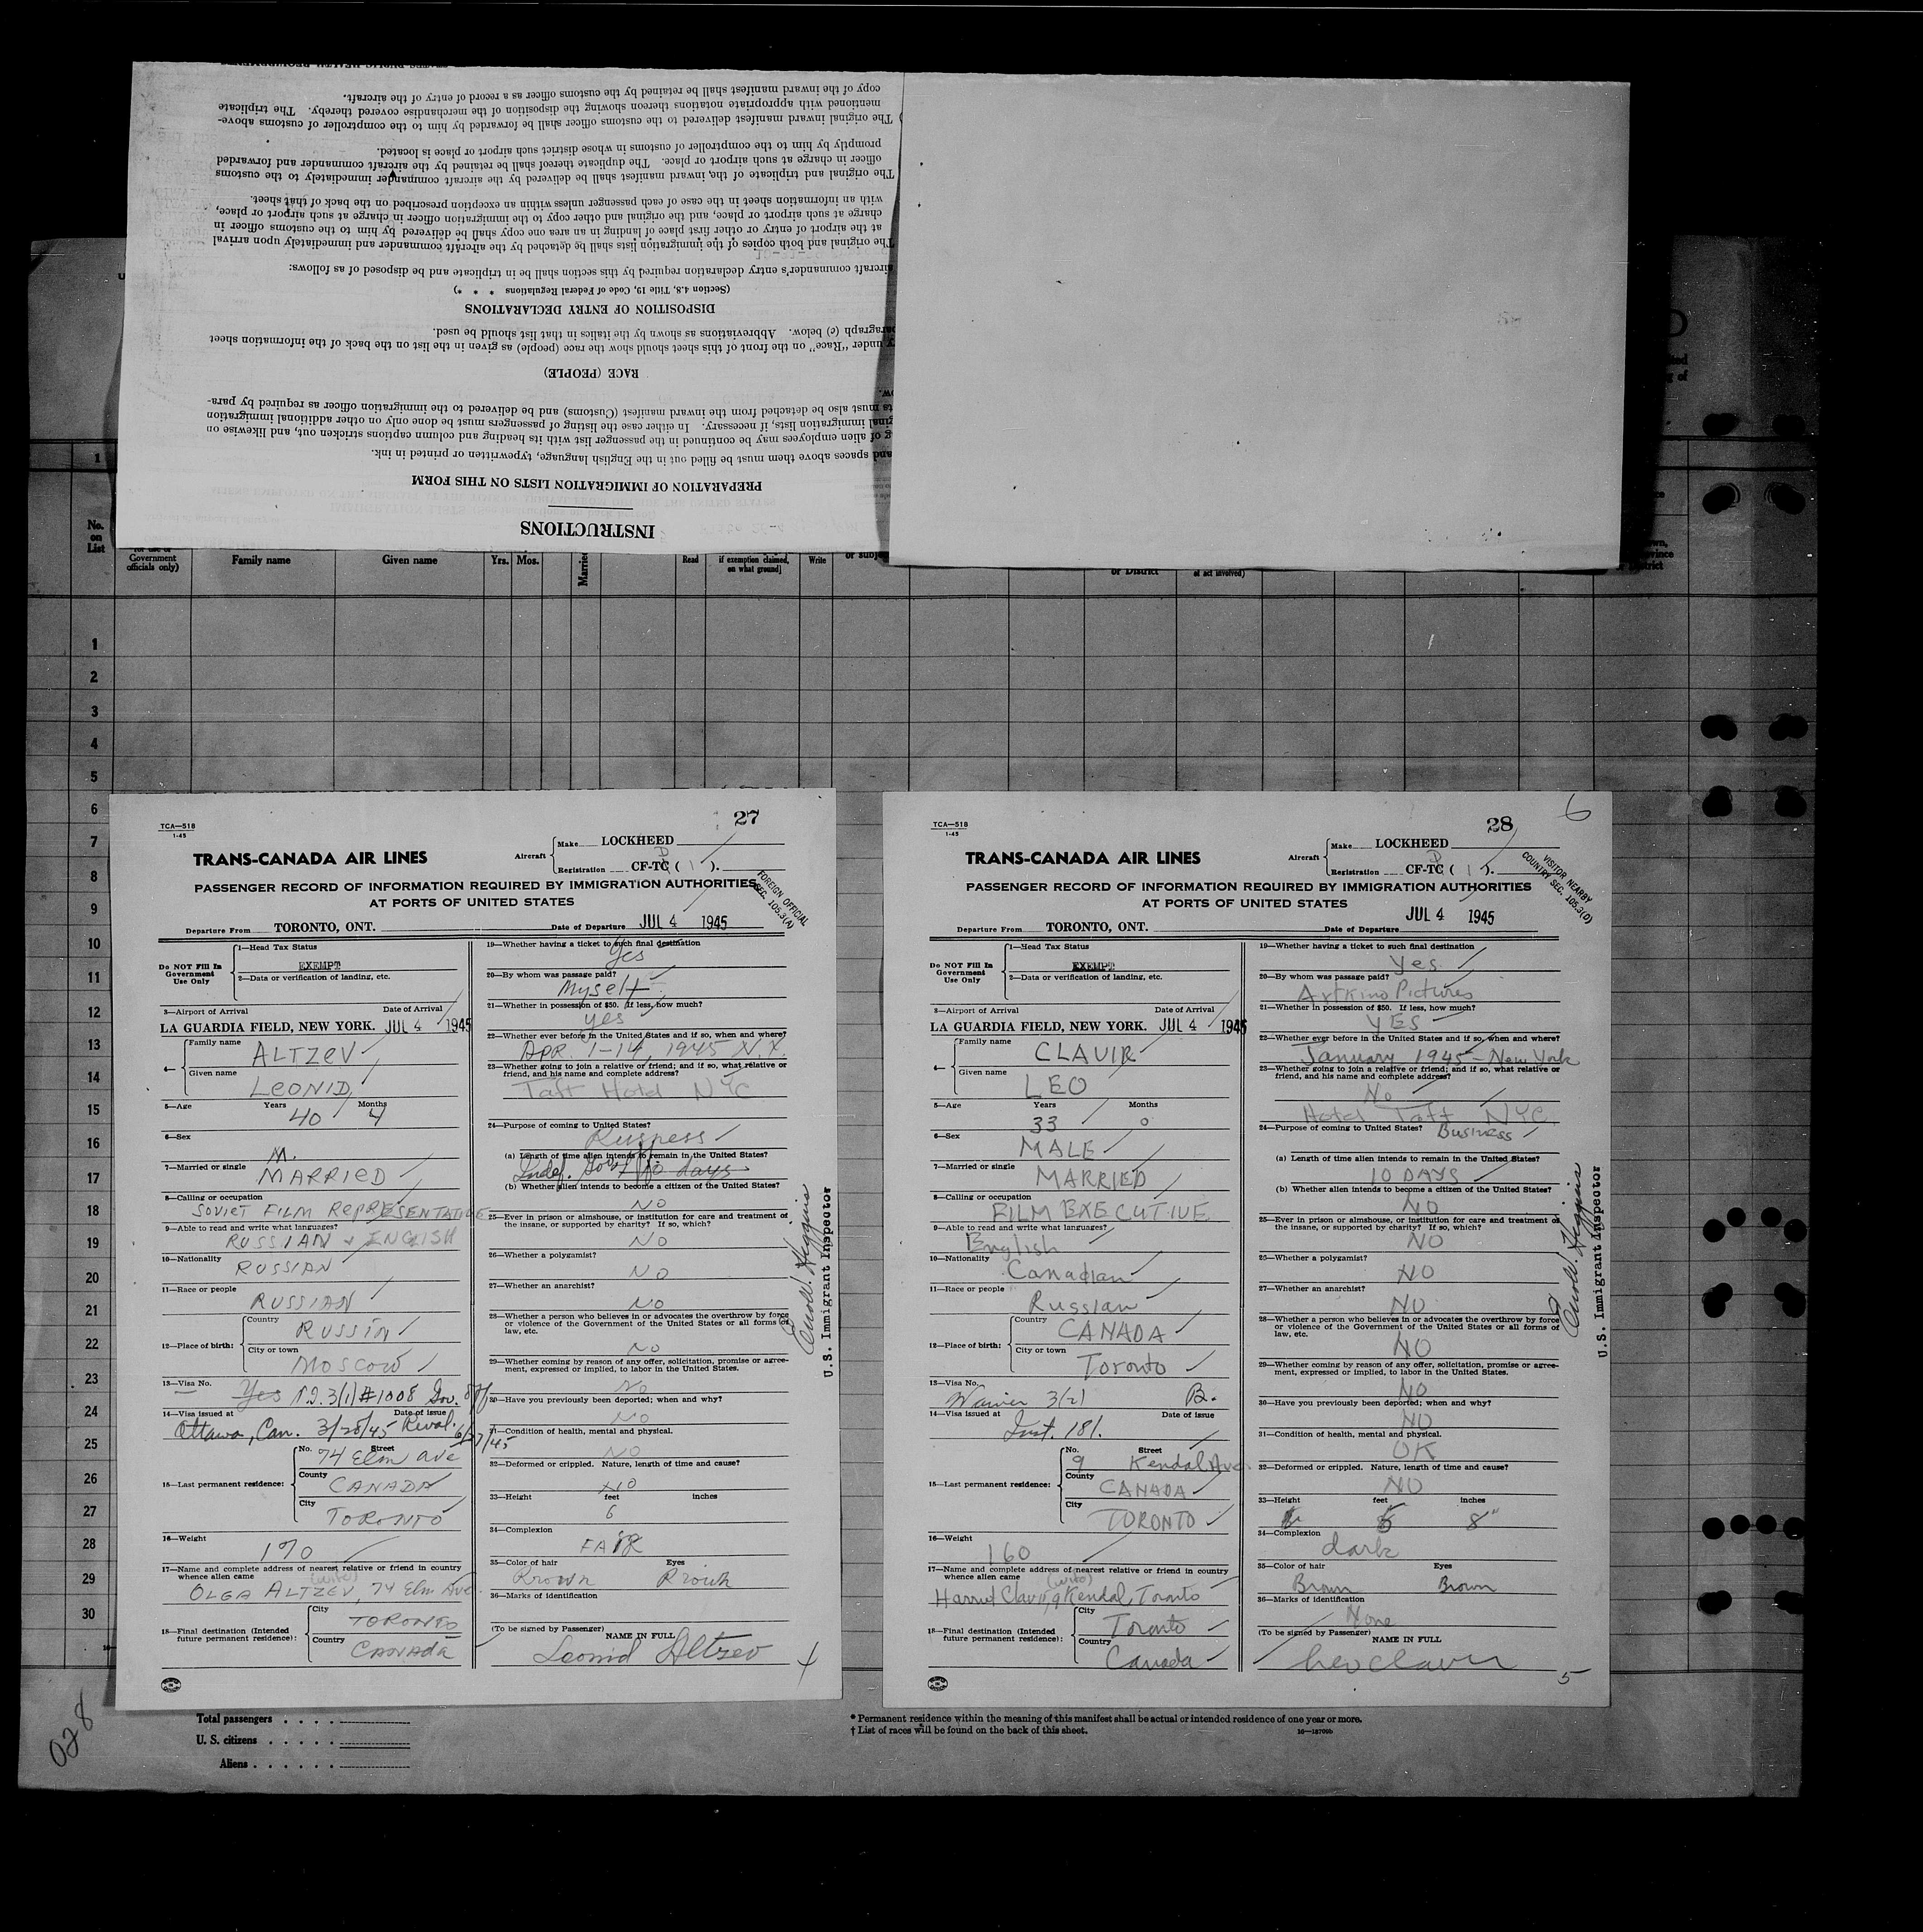 INSTRUCTIONS
PREPARATION OF IMMIGRATION LISTS ON THIS FORM
and spaces above them must be filled out in the English language, typewritten or printed in ink.
g of alien employees may be continued in the passenger list with its heading and column captions stricken out, and likewise on
ginal immigration lists, if necessary. In either case the listing of passengers must be done only on other additional immigration
ts must also be detached from the inward manifest (Customs) and be delivered to the immigration officer as required by para-
ow.
RACE (PEOPLE)
y under "Race" on the front of this sheet should show the race (people) as given in the list on the back of the information sheet
paragraph (c) below. Abbreviations as shown by the italics in that list should be used.
DISPOSITION OF ENTRY DECLARATIONS
(Section 4.8, Title 19, Code of Federal Regulations * * *)
aircraft commander's entry declaration required by this section shall be in triplicate and be disposed of as follows:
The original and both copies of the immigration lists shall be detached by the aircraft commander and immediately upon arrival
at the airport of entry or other first place of landing in an area one copy shall be delivered by him to the customs officer in
charge at such airport or place, and the original and other copy to the immigration officer in charge at such airport or place,
with an information sheet in the case of each passenger unless within an exception prescribed on the back of that sheet.
The original and triplicate of the inward manifest shall be delivered by the aircraft commander immediately to the customs
officer in charge at such airport or place. The duplicate thereof shall be retained by the aircraft commander and forwarded
promptly by him to the comptroller of customs in whose district such airport or place is located.
) The original inward manifest delivered to the customs officer shall be forwarded by him to the comptroller of customs above-
mentioned with appropriate notations thereon showing the disposition of the merchandise covered thereby. The triplicate
copy of the inward manifest shall be retained by the customs officer as a record of entry of the aircraft.
1
No. on List
Government officials only)
Family name
Given name
Yrs.
Mos.
Married
Read
if exemption claimed, on what ground]
Write
or subj
or District
of act involved)
1
2
3
4
5
6
7
8
9
10
11
12
13
14
15
16
17
18
19
20
21
22
23
24
25
26
27
28
29
30
TCA—518
1-45
27
TRANS-CANADA AIR LINES
Aircraft
Make LOCKHEED
Registration CF-TC ( 1 ).
PASSENGER RECORD OF INFORMATION REQUIRED BY IMMIGRATION AUTHORITIES
AT PORTS OF UNITED STATES
FOREIGN OFFICIAL
SEC. 105.3(A)
Departure From TORONTO, ONT. Date of Departure JUL 4 1945
Do NOT Fill In Government Use Only
1—Head Tax Status
EXEMPT
2—Data or verification of landing, etc.
3—Airport of Arrival Date of Arrival
LA GUARDIA FIELD, NEW YORK. JUL 4 1945
4—
Family name
ALTZEV
Given name
LEONID
5—Age Years 40 Months 4
6—Sex
M.
7—Married or single
MARRIED
8—Calling or occupation
SOVIET FILM REPRESENTATIVE
9—Able to read and write what languages?
RUSSIAN & ENGLISH
10—Nationality
RUSSIAN
11—Race or people
RUSSIAN
12—Place of birth:
Country
RUSSIA
City or town
MOSCOW
13—Visa No.
Yes P.V. 3(1) #1008 Gov. Off
14—Visa issued at Date of issue
Ottawa, Can. 3/28/45 Reval. 6/27/45
15—Last permanent residence:
No. Street
74 Elm Ave
County
CANADA
City
TORONTO
16—Weight
170
17—Name and complete address of nearest relative or friend in country whence alien came
(wife)
OLGA ALTZEV, 74 Elm Ave.
18—Final destination (Intended future permanent residence):
City
TORONTO
Country
CANADA
19—Whether having a ticket to such final destination
Yes
20—By whom was passage paid?
Myself
21—Whether in possession of $50. If less, how much?
yes
22—Whether ever before in the United States and if so, when and where?
APR. 1-14, 1945 N.Y.
23—Whether going to join a relative or friend; and if so, what relative or friend, and his name and complete address?
Taft Hotel NYC
24—Purpose of coming to United States?
Business
(a) Length of time alien intends to remain in the United States?
Indef. Gov't 10 days
(b) Whether alien intends to become a citizen of the United States?
NO
25—Ever in prison or almshouse, or institution for care and treatment of the insane, or supported by charity? If so, which?
NO
26—Whether a polygamist?
NO
27—Whether an anarchist?
NO
28—Whether a person who believes in or advocates the overthrow by force or violence of the Government of the United States or all forms of law, etc.
NO
29—Whether coming by reason of any offer, solicitation, promise or agreement, expressed or implied, to labor in the United States.
NO
30—Have you previously been deported; when and why?
NO
31—Condition of health, mental and physical.
NO
32—Deformed or crippled. Nature, length of time and cause?
NO
33—Height feet inches
6
34—Complexion
FAIR
35—Color of hair Eyes
Brown Brown
36—Marks of identification
(To be signed by Passenger) NAME IN FULL
Leonid Altzev
4
U.S. Immigrant Inspector
TCA—518
1-45
28
6
TRANS-CANADA AIR LINES
Aircraft
Make LOCKHEED
Registration CF-TC ( 1 ).
PASSENGER RECORD OF INFORMATION REQUIRED BY IMMIGRATION AUTHORITIES
AT PORTS OF UNITED STATES
VISITOR NEARBY
COUNTRY SEC. 105.3(D)
Departure From TORONTO, ONT. Date of Departure JUL 4 1945
Do NOT Fill In Government Use Only
1—Head Tax Status
EXEMPT
2—Data or verification of landing, etc.
3—Airport of Arrival Date of Arrival
LA GUARDIA FIELD, NEW YORK. JUL 4 1945
4—
Family name
CLAVIR
Given name
LEO
5—Age Years 33 Months 0
6—Sex
MALE
7—Married or single
MARRIED
8—Calling or occupation
FILM EXECUTIVE
9—Able to read and write what languages?
English
10—Nationality
Canadian
11—Race or people
Russian
12—Place of birth:
Country
CANADA
City or town
Toronto
13—Visa No.
Waiver 3(2) B.
14—Visa issued at Date of issue
Inst. 181.
15—Last permanent residence:
No. Street
9 Kendal Ave
County
CANADA
City
TORONTO
16—Weight
160
17—Name and complete address of nearest relative or friend in country whence alien came
(wife)
Clavir, 9 Kendal, Toronto
18—Final destination (Intended future permanent residence):
City
Toronto
Country
Canada
19—Whether having a ticket to such final destination
Yes
20—By whom was passage paid?
Artkino Pictures
21—Whether in possession of $50. If less, how much?
YES
22—Whether ever before in the United States and if so, when and where?
January 1945 - New York
23—Whether going to join a relative or friend; and if so, what relative or friend, and his name and complete address?
No
Hotel Taft NYC
24—Purpose of coming to United States? Business
(a) Length of time alien intends to remain in the United States?
10 DAYS
(b) Whether alien intends to become a citizen of the United States?
NO
25—Ever in prison or almshouse, or institution for care and treatment of the insane, or supported by charity? If so, which?
NO
26—Whether a polygamist?
NO
27—Whether an anarchist?
NO
28—Whether a person who believes in or advocates the overthrow by force or violence of the Government of the United States or all forms of law, etc.
NO
29—Whether coming by reason of any offer, solicitation, promise or agreement, expressed or implied, to labor in the United States.
NO
30—Have you previously been deported; when and why?
NO
31—Condition of health, mental and physical.
OK
32—Deformed or crippled. Nature, length of time and cause?
NO
33—Height feet inches
5 8"
34—Complexion
dark
35—Color of hair Eyes
Brown Brown
36—Marks of identification
None
(To be signed by Passenger) NAME IN FULL
Leo Clavir
5
U.S. Immigrant Inspector
028
Total passengers
U. S. citizens
Aliens
* Permanent residence within the meaning of this manifest shall be actual or intended residence of one year or more.
† List of races will be found on the back of this sheet.
16—18709b